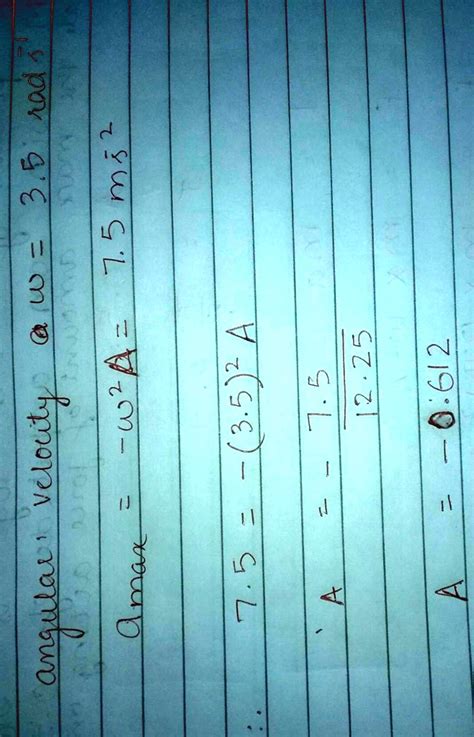 angular velocity ω = 3.5 rad s⁻¹
amax = -ω²A = 7.5 ms⁻²
∴ 7.5 = -(3.5)² A
A = - 7.5
12.25
A = - 0.612